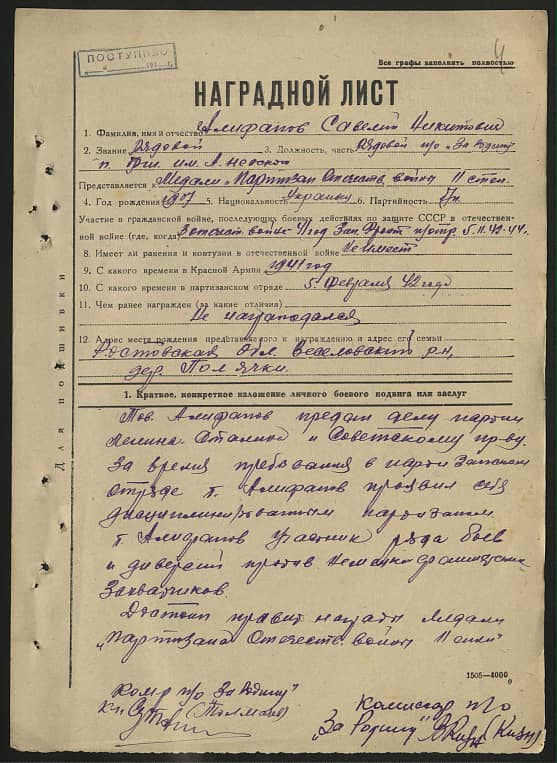 ПОСТУПИЛО
Все графы заполнять полностью
4
НАГРАДНОЙ ЛИСТ
1. Фамилия, имя и отчество Алифанов Савелий Никитович
2. Звание Рядовой 3. Должность, часть Рядовой п/о "За Родину"
п. бриг. им. А. Невского
Представляется к Медали "Партизан Отечеств. войны II степ.
4. Год рождения 1907 5. Национальность Украинец 6. Партийность
Участие в гражданской войне, последующих боевых действиях по защите СССР в отечествен-
ной войне (где, когда) В отечест. войне 41 год Зап. Фронт п/отр. 5.II.42-44.
8. Имеет ли ранения и контузии в отечественной войне Не имеет
9. С какого времени в Красной Армии 1941 год
10. С какого времени в партизанском отряде 5. февраля 42 года
11. Чем ранее награжден (за какие отличия)
Не награждался
12. Адрес места рождения представляемого к награждению и адрес его семьи
Ростовская обл. Веселовский р-н,
дер. Полячки.
Для подшивки
1. Краткое, конкретное изложение личного боевого подвига или заслуг
Тов. Алифанов предан делу партии
Ленина-Сталина и Советскому пр-ву.
За время пребывания в партизанском
отряде т. Алифанов проявил себя
дисциплинированным партизаном.
т. Алифанов участник ряда боев
и диверсий против немецко-фашистских
захватчиков.
Достоин правит. награды Медали
"Партизана Отечеств. войны II степ"
1505-4000
Комр п/о За Родину"
к-н (Толмачев)
Комиссар п/о
"За Родину"